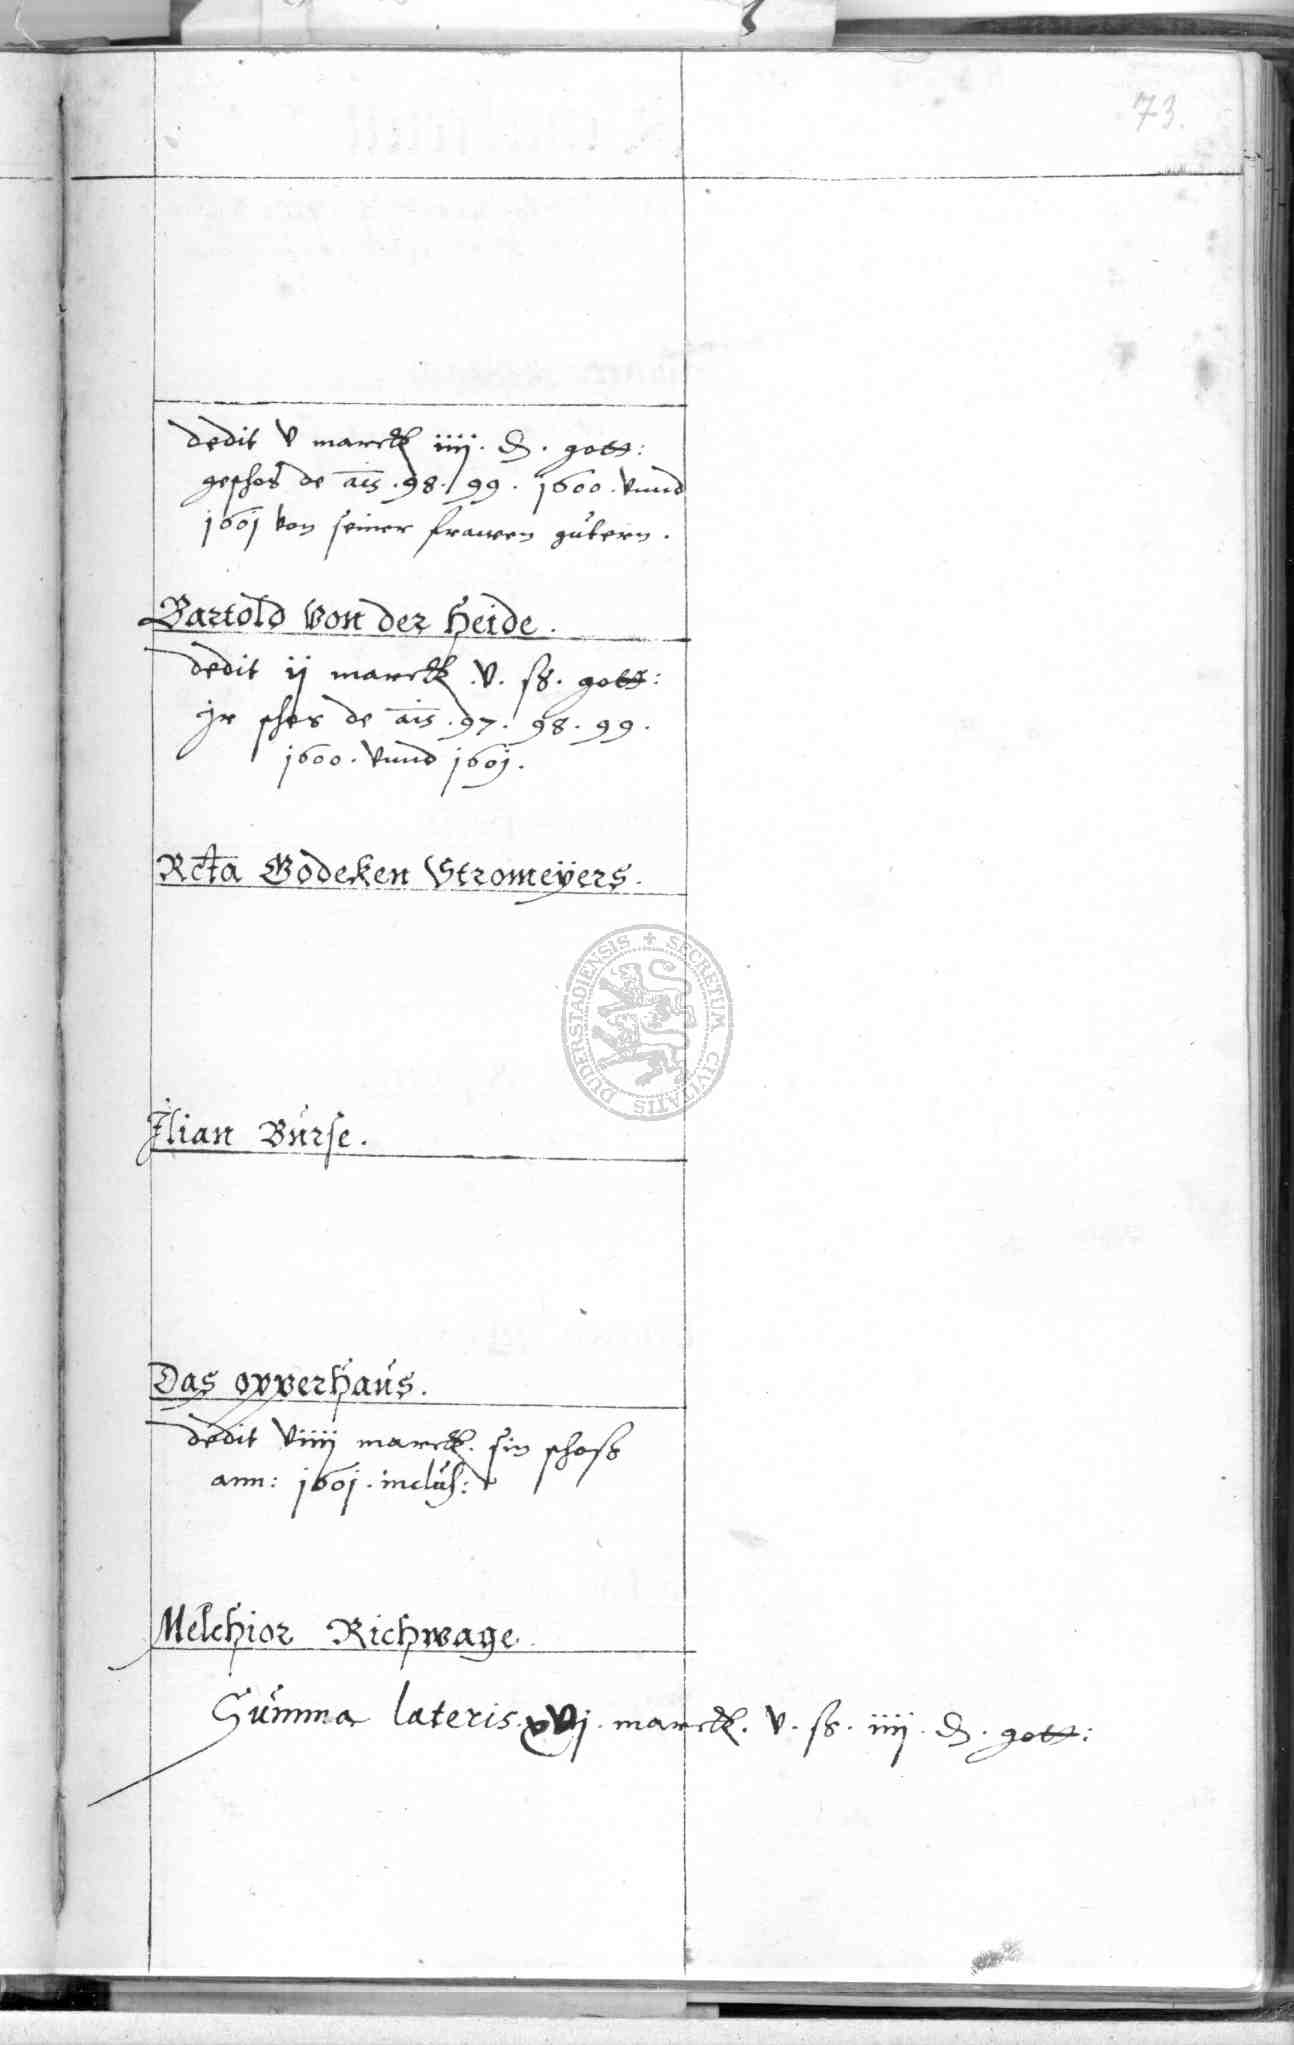 73.
dedit v marck iiij. d. gott:
geschos de ais. 98. 99. 1600. vnnd
1601 von seiner frawen gütern.
Bartold von der Heide.
dedit ij marck. v. ß. gott:
Jr schos de ais. 97. 98. 99.
1600. vnnd 1601.
Rcta Godeken Stromeÿers.
SECRETUM CIVITATIS DUDERSTADIENSIS
Ilian Bürse.
Das opperhaüs.
dedit viiij marck. sin schoss
ann: 1601. inclüs:
Melchior Richwage.
Sümma lateris. xvj. marck. v. ß. iiij. d. gott: